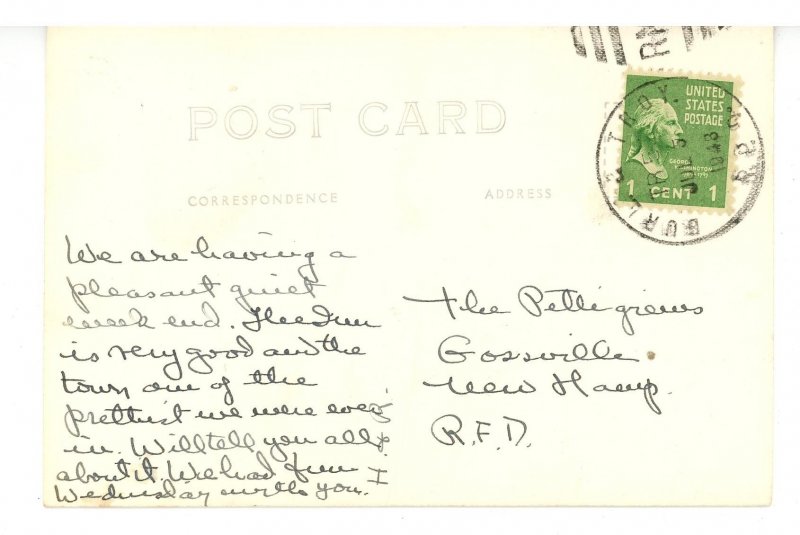 POST CARD
CORRESPONDENCE
ADDRESS
UNITED
STATES
POSTAGE
GEORGE
WASHINGTON
1 CENT 1
BURL & TROY.
R.P.O.
1948
We are having a
pleasant quiet
week end. The Inn
is very good and the
town one of the
prettiest we were ever
in. Will tell you all
about it. We had fun
Wednesday with you.
The Pettigrews
Gossville
New Hamp.
R.F.D.